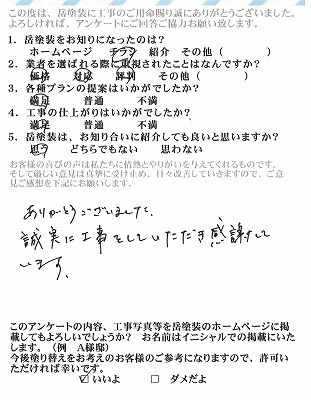 この度は、岳塗装に工事のご用命賜り誠にありがとうございました。
よろしければ、アンケートにご回答ご協力お願い致します。
1. 岳塗装をお知りになったのは?
ホームページ チラシ 紹介 その他（ ）
2. 業者を選ばれる際に重視されたことはなんですか?
価格 対応 評判 その他（ ）
3. 各種プランの提案はいかがでしたか?
満足 普通 不満
4. 工事の仕上がりはいかがでしたか?
満足 普通 不満
5. 岳塗装は、お知り合いに紹介しても良いと思いますか?
思う どちらでもない 思わない
お客様の喜びの声は私たちに情熱とやりがいを与えてくれるものです。
そして厳しい意見は真摯に受け止め、日々改善していきますので、ご意
見ご感想を下記にお願いします。
ありがとうございました。
誠実に工事をしていただき感謝して
います。
このアンケートの内容、工事写真等を岳塗装のホームページに掲
載してもよろしいでしょうか? お名前はイニシャルでの掲載にいた
します。（例 A様邸）
今後塗り替えをお考えのお客様のご参考になりますので、許可い
ただければ幸いです。
☑ いいよ □ ダメだよ